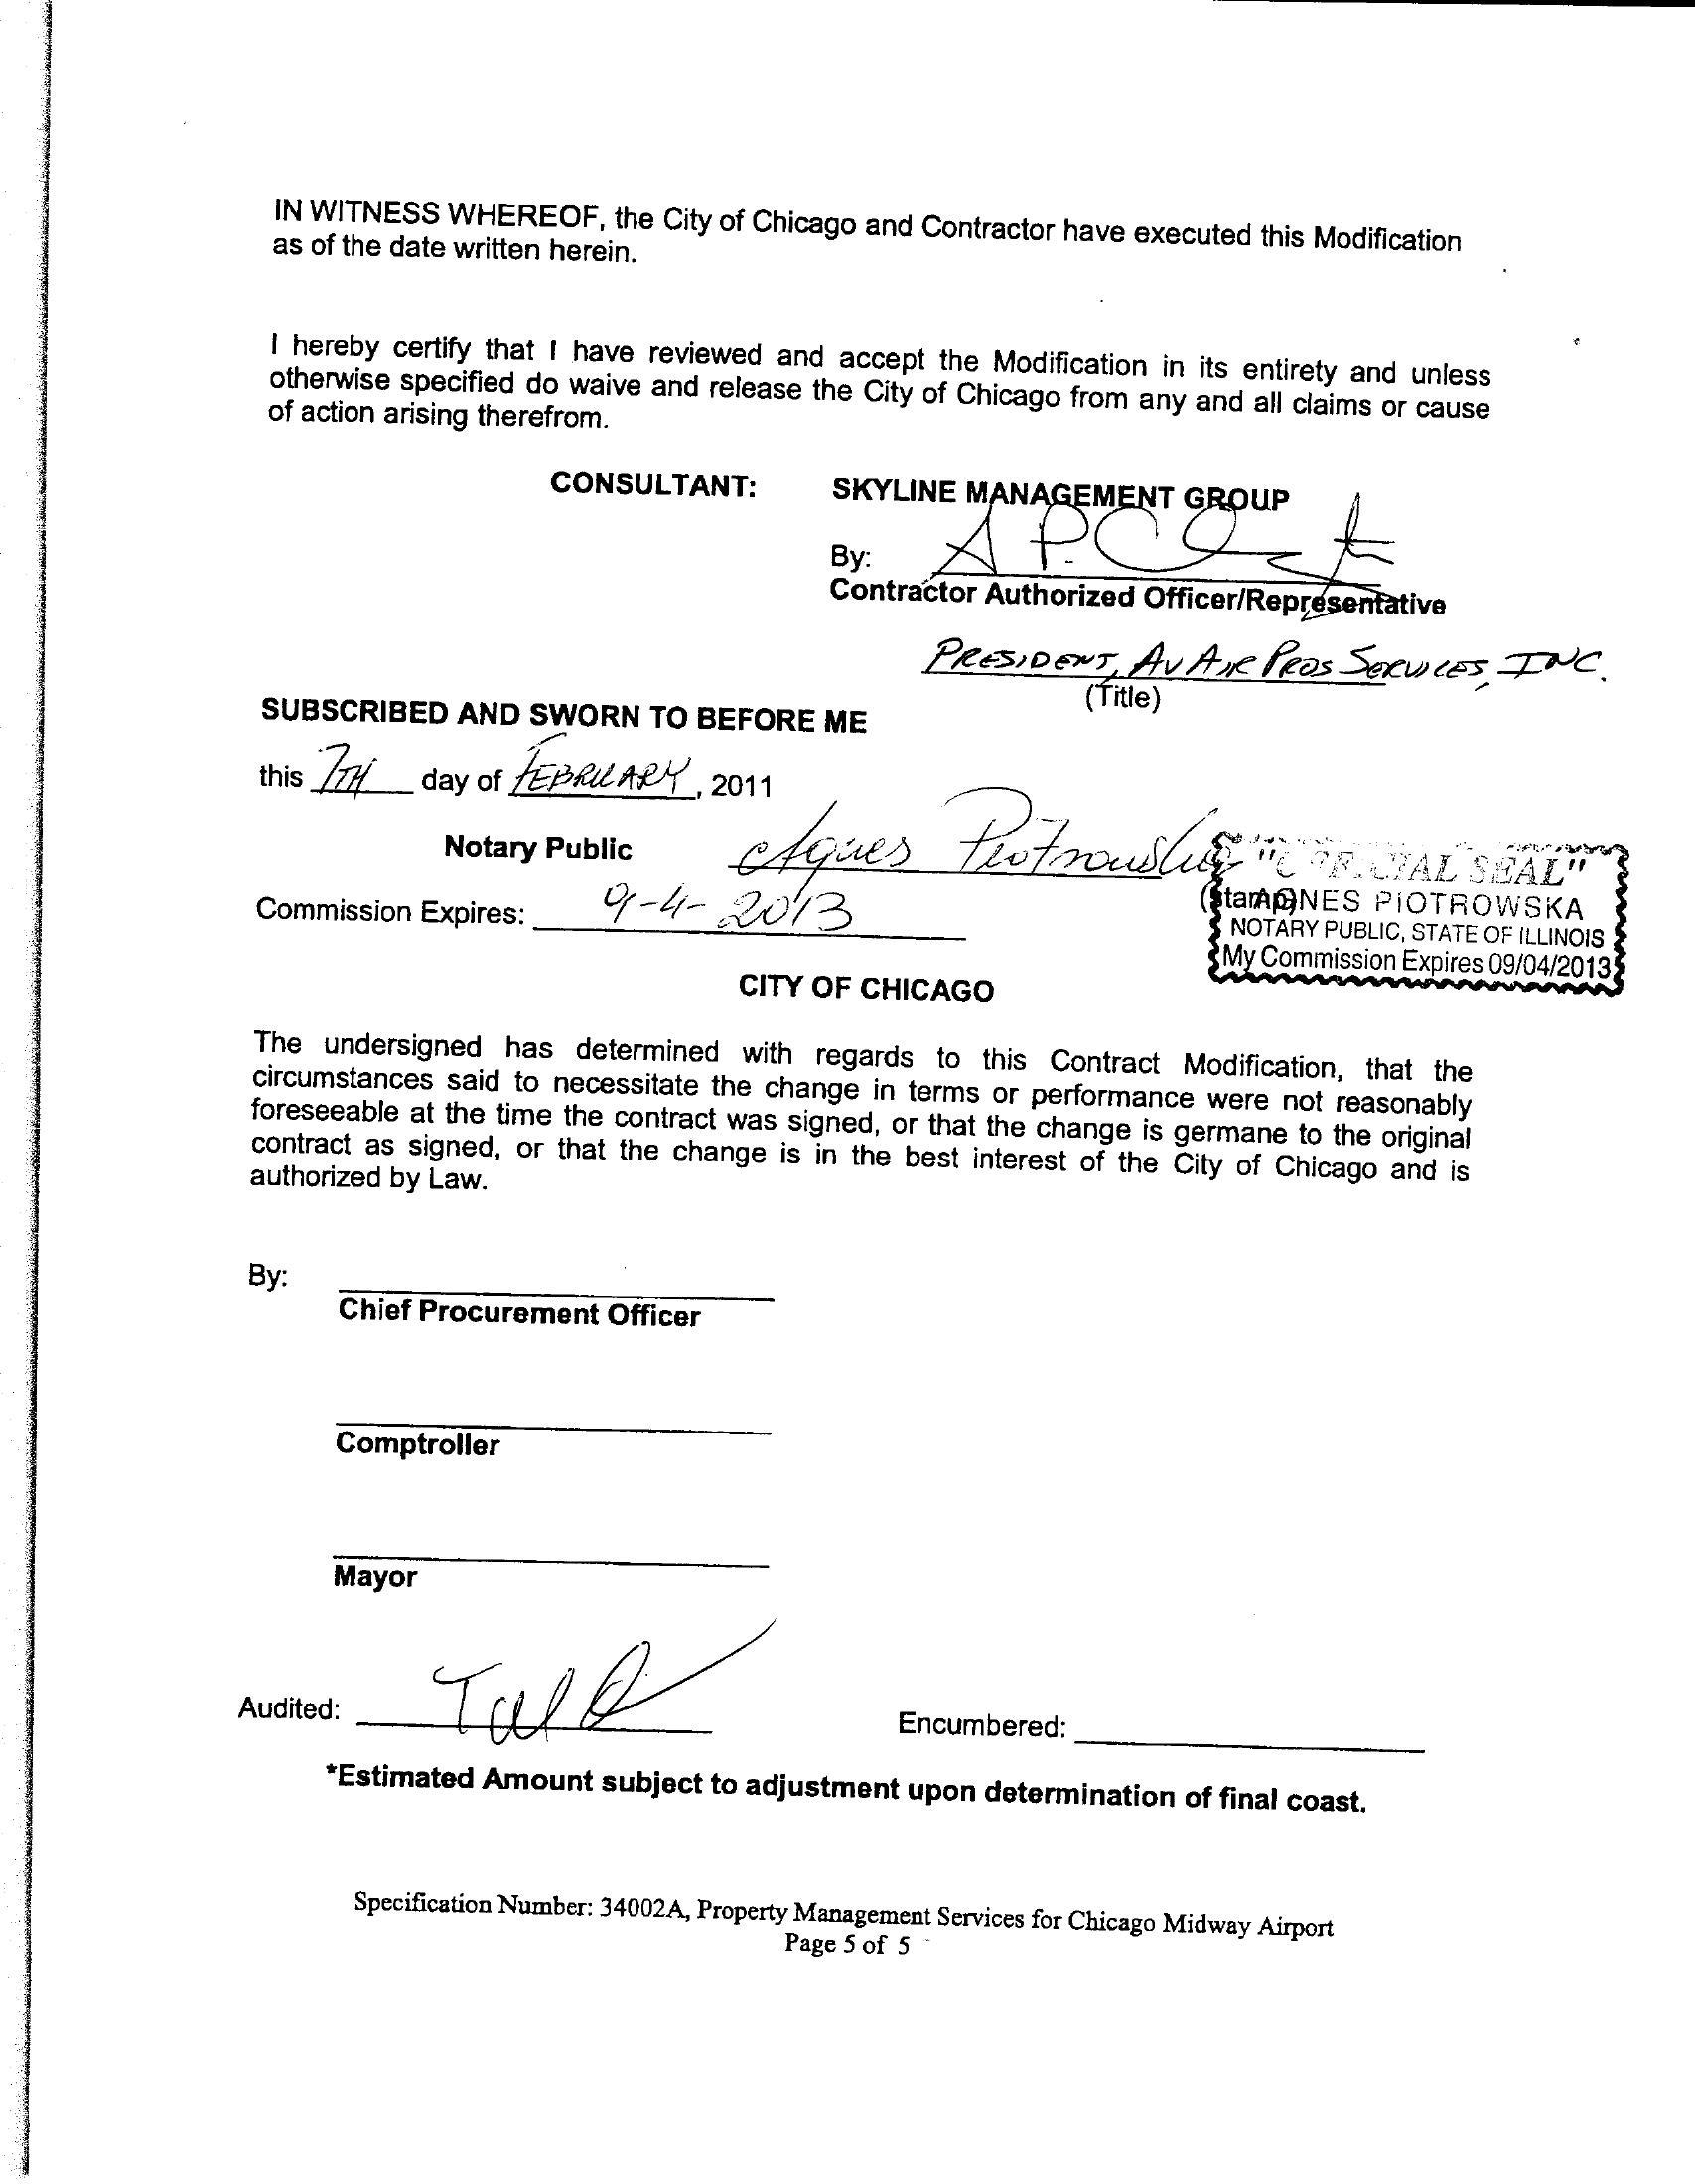 IN WITNESS WHEREOF, the City of Chicago and Contractor have executed this Modification
as of the date written herein.
I hereby certify that I have reviewed and accept the Modification in its entirety and unless
otherwise specified do waive and release the City of Chicago from any and all claims or cause
of action arising therefrom.
CONSULTANT: SKYLINE MANAGEMENT GROUP
By:
Contractor Authorized Officer/Representative
PRESIDENT, AVAIR PROS SERVICES, INC.
(Title)
SUBSCRIBED AND SWORN TO BEFORE ME
this 7TH day of FEBRUARY, 2011
Notary Public Agnes Piotrowska
Commission Expires: 9-4-2013
"OFFICIAL SEAL"
AGNES PIOTROWSKA
NOTARY PUBLIC, STATE OF ILLINOIS
My Commission Expires 09/04/2013
CITY OF CHICAGO
The undersigned has determined with regards to this Contract Modification, that the
circumstances said to necessitate the change in terms or performance were not reasonably
foreseeable at the time the contract was signed, or that the change is germane to the original
contract as signed, or that the change is in the best interest of the City of Chicago and is
authorized by Law.
By:
Chief Procurement Officer
Comptroller
Mayor
Audited:
Encumbered:
*Estimated Amount subject to adjustment upon determination of final coast.
Specification Number: 34002A, Property Management Services for Chicago Midway Airport
Page 5 of 5